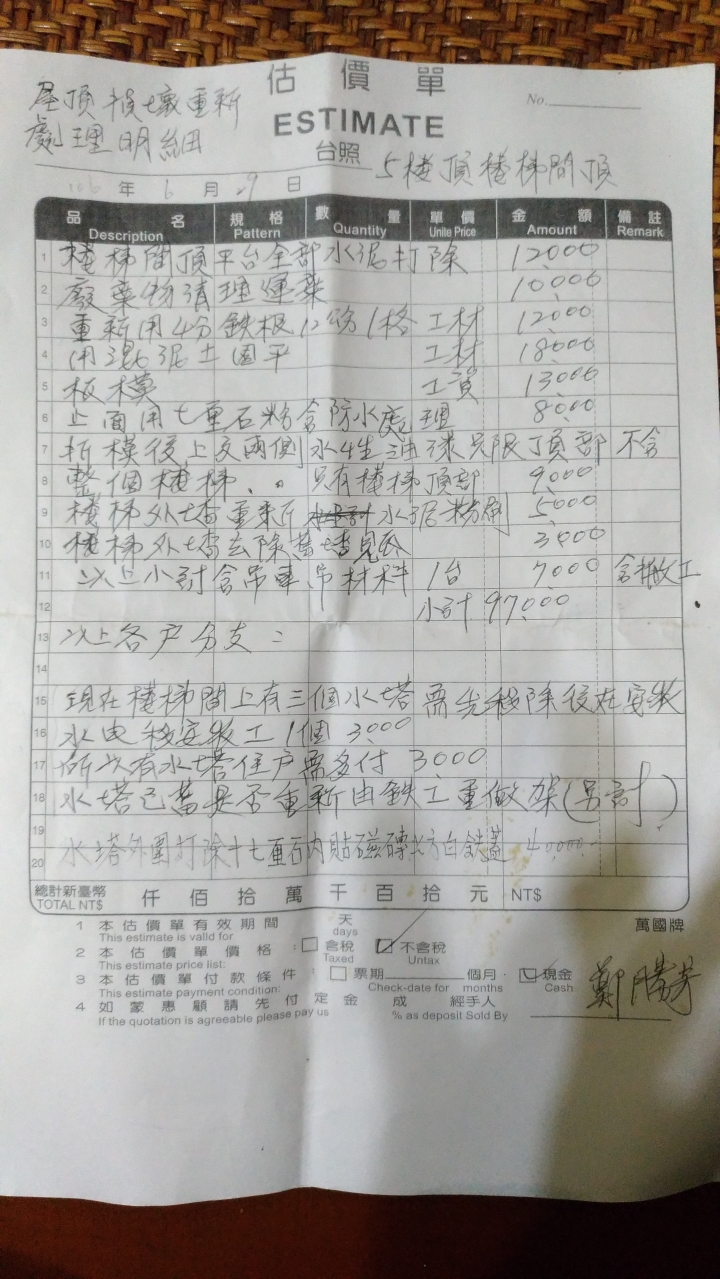 估價單
ESTIMATE
No.
屋頂損壞重新
處理明細
台照
5樓頂樓梯間頂
106 年 6 月 29 日
品名 規格 數量 單價 金額 備註
Description Pattern Quantity Unite Price Amount Remark
1 樓梯間頂平台全部水泥打除 12000
2 廢棄物清理運棄 10000
3 重新用4分鉄根12公分1格 工材 12000
4 用混泥土 平 工材 18000
5 板模 工資 13000
6 上面用七重石粉含防水處理 8000
7 折模後上支兩側水性油漆只限頂部 不含
8 整個樓梯.。只有樓梯頂部 9000
9 樓梯外墻重新 水泥粉刷 5000
10 樓梯外墻去除舊墻見 3000
11 以上小計含吊車吊材料 1台 7000 含搬工
12 小計 97000
13 以上各户分支:
14
15 現在樓梯間上有三個水塔需先移除後在安裝
16 水电移安裝工1個 3000
17 所以有水塔住户需多付 3000
18 水塔已舊是否重新由鉄工重做架(另計)
19
20 水塔外圍打除十七重石内貼磁磚 方白鉄蓋 40000
總計新臺幣 仟 佰 拾 萬 千 百 拾 元 NT$
TOTAL NT$
萬國牌
1 本估價單有效期間 天
This estimate is valid for days
2 本估價單價格: □含稅 ☑不含稅
This estimate price list: Taxed Untax
3 本估價單付款條件: □票期 個月 ☑現金
This estimate payment condition: Check-date for months Cash
4 如蒙惠顧請先付定金 成 經手人 鄭勝芳
If the quotation is agreeable please pay us % as deposit Sold By